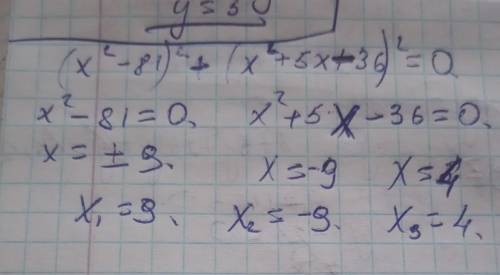 y = 30
(x² - 81)² + (x² + 5x - 36)² = 0
x² - 81 = 0. x² + 5x - 36 = 0.
x = ± 9. x = -9 x = 4
x₁ = 9. x₂ = -9. x₃ = 4.